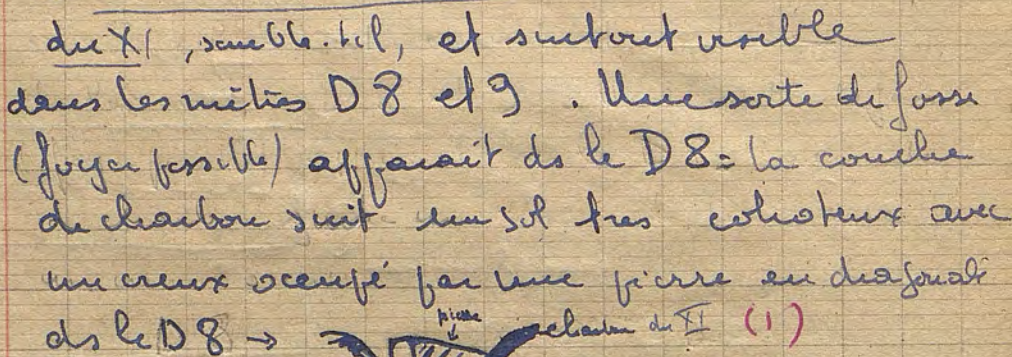 du XI, semble-t-il, et surtout visible
dans les mètres D 8 et 9. Une sorte de fosse
(foyer possible) apparait ds le D8 = la couche
de charbon suit un sol tres cahoteux avec
un creux occupé par une pierre en diagonale
ds le D 8 →
pierre
charbon du XI (1)